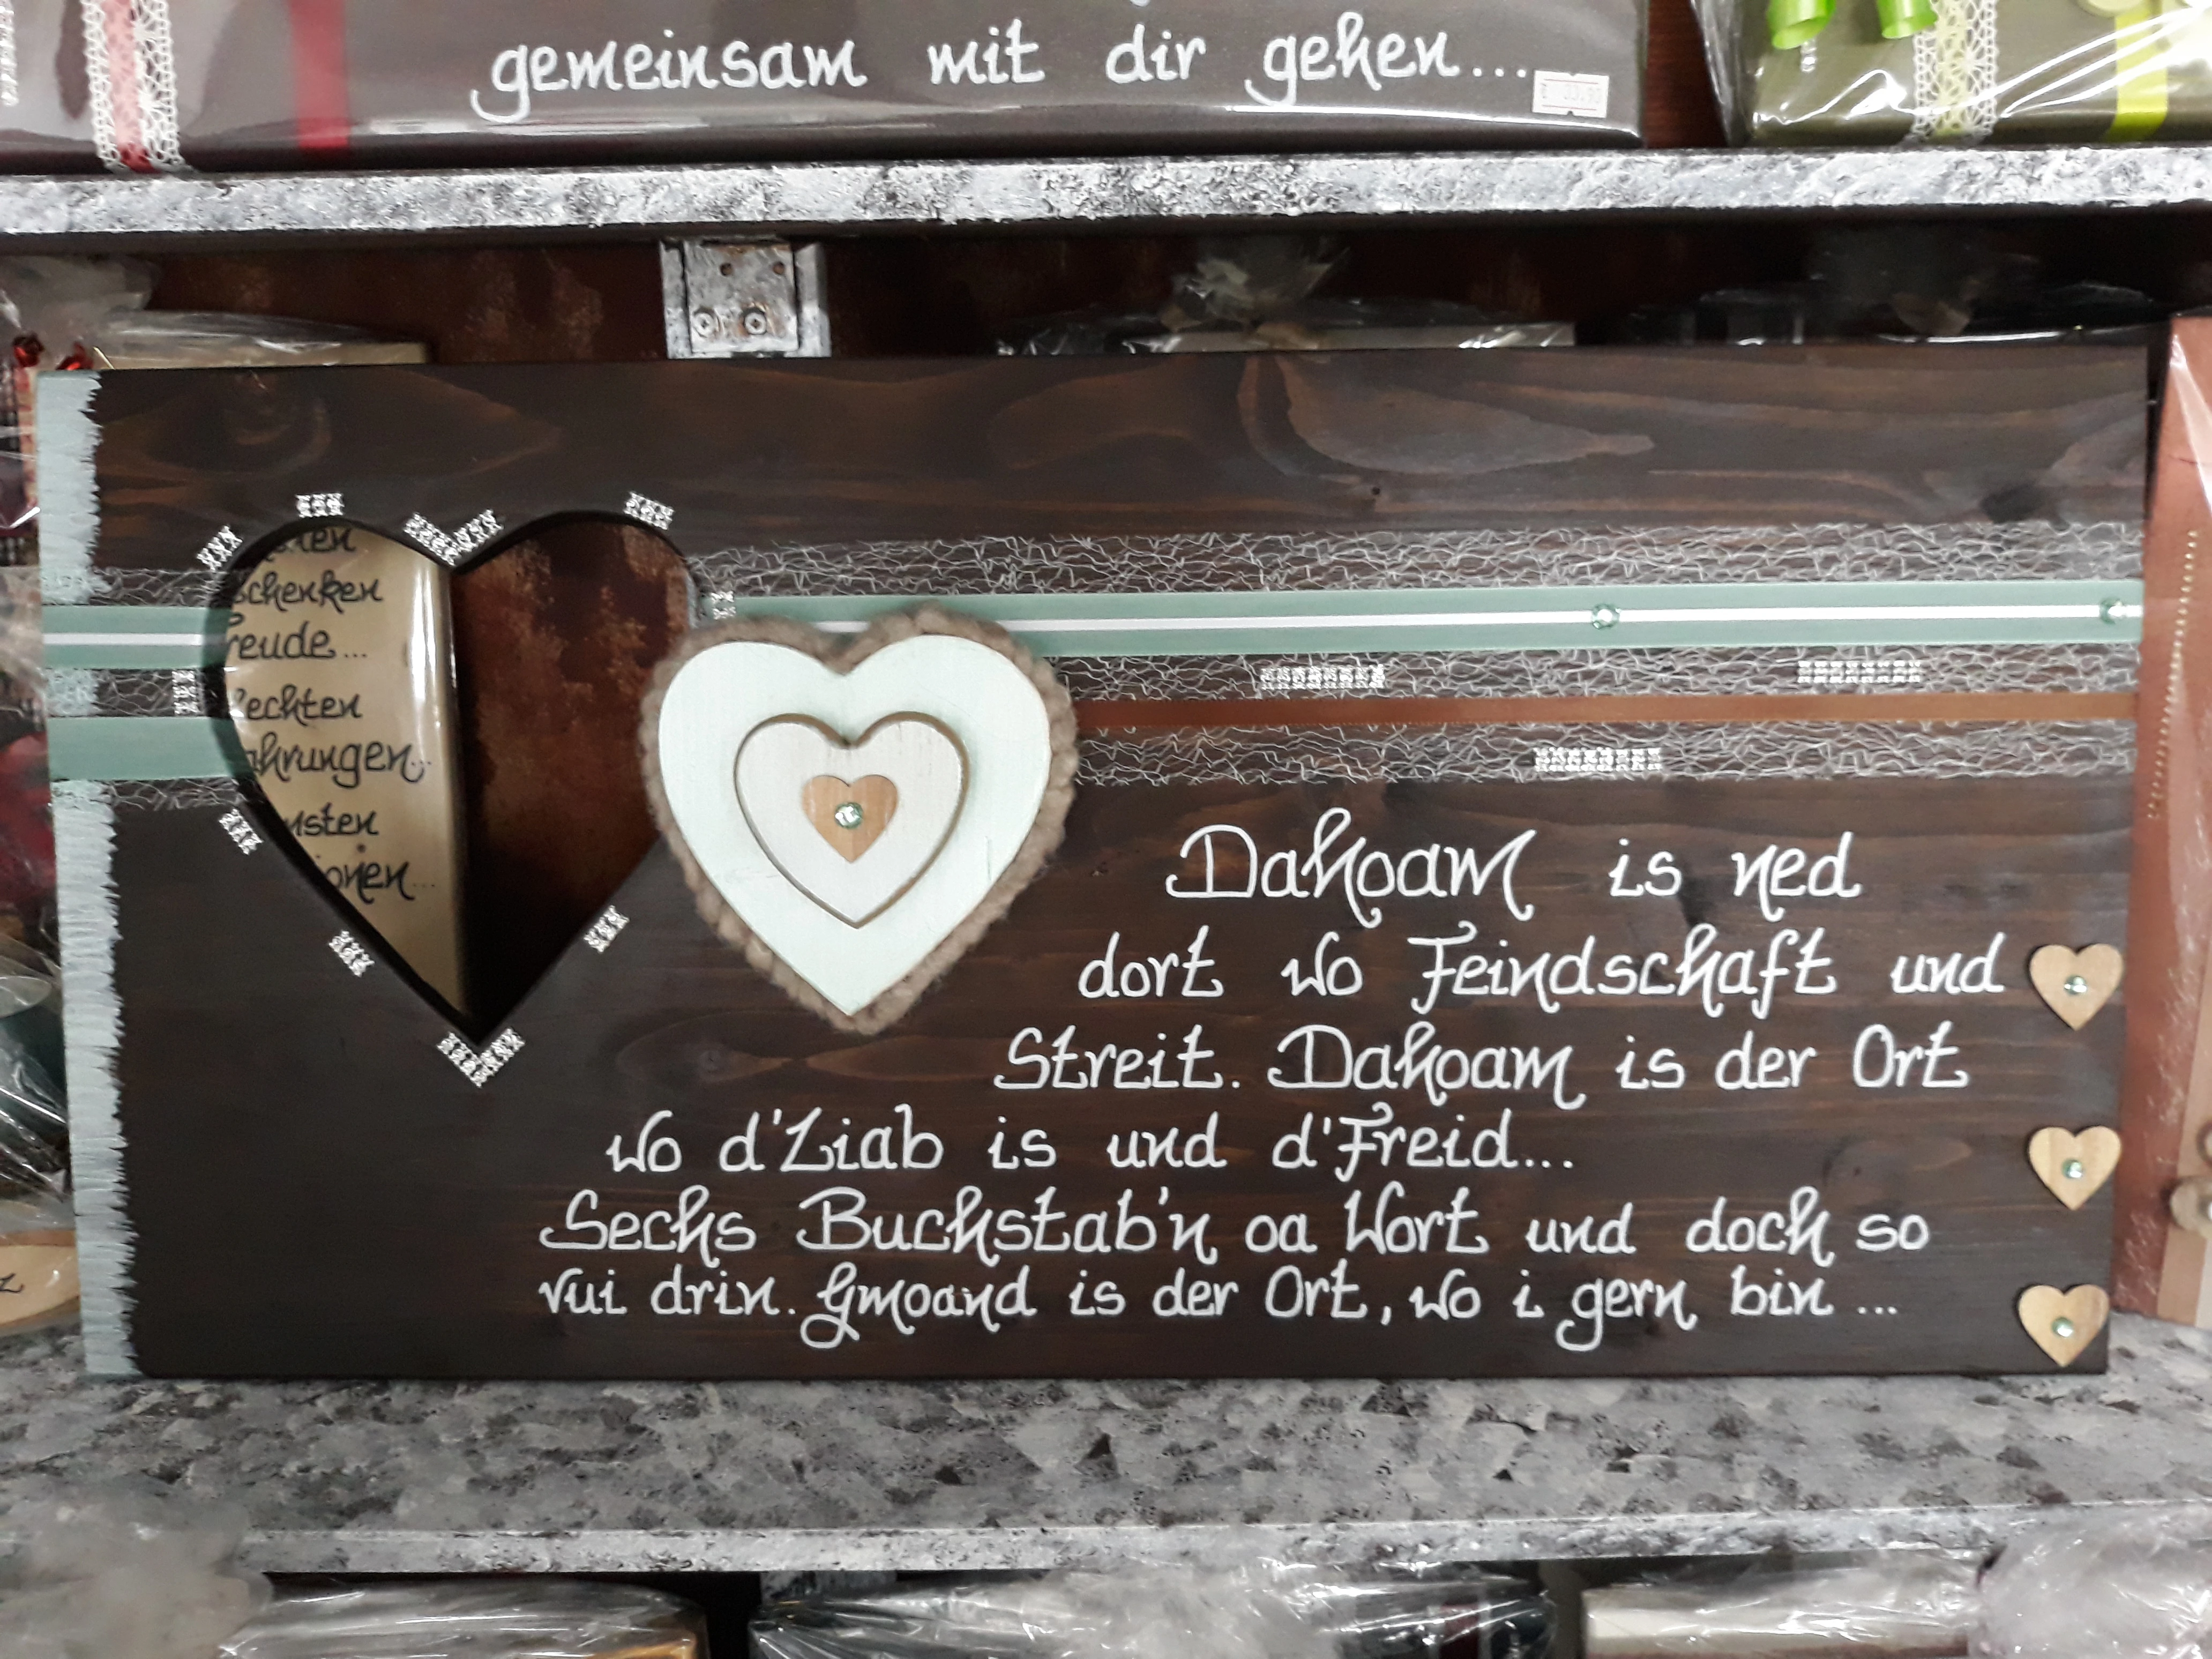 gemeinsam mit dir gehen...
schenken
reude...
echten
ahrungen...
nsten
ionen...
Dahoam is ned
dort wo Feindschaft und
Streit. Dahoam is der Ort
wo d'Liab is und d'Freid...
Sechs Buchstab'n oa Wort und doch so
vui drin. Gmoand is der Ort, wo i gern bin ...